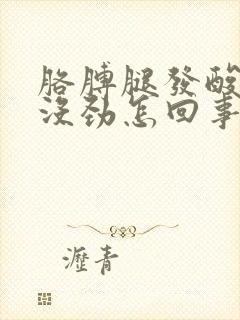 胳膊腿發酸
沒勁怎回事
瀝青